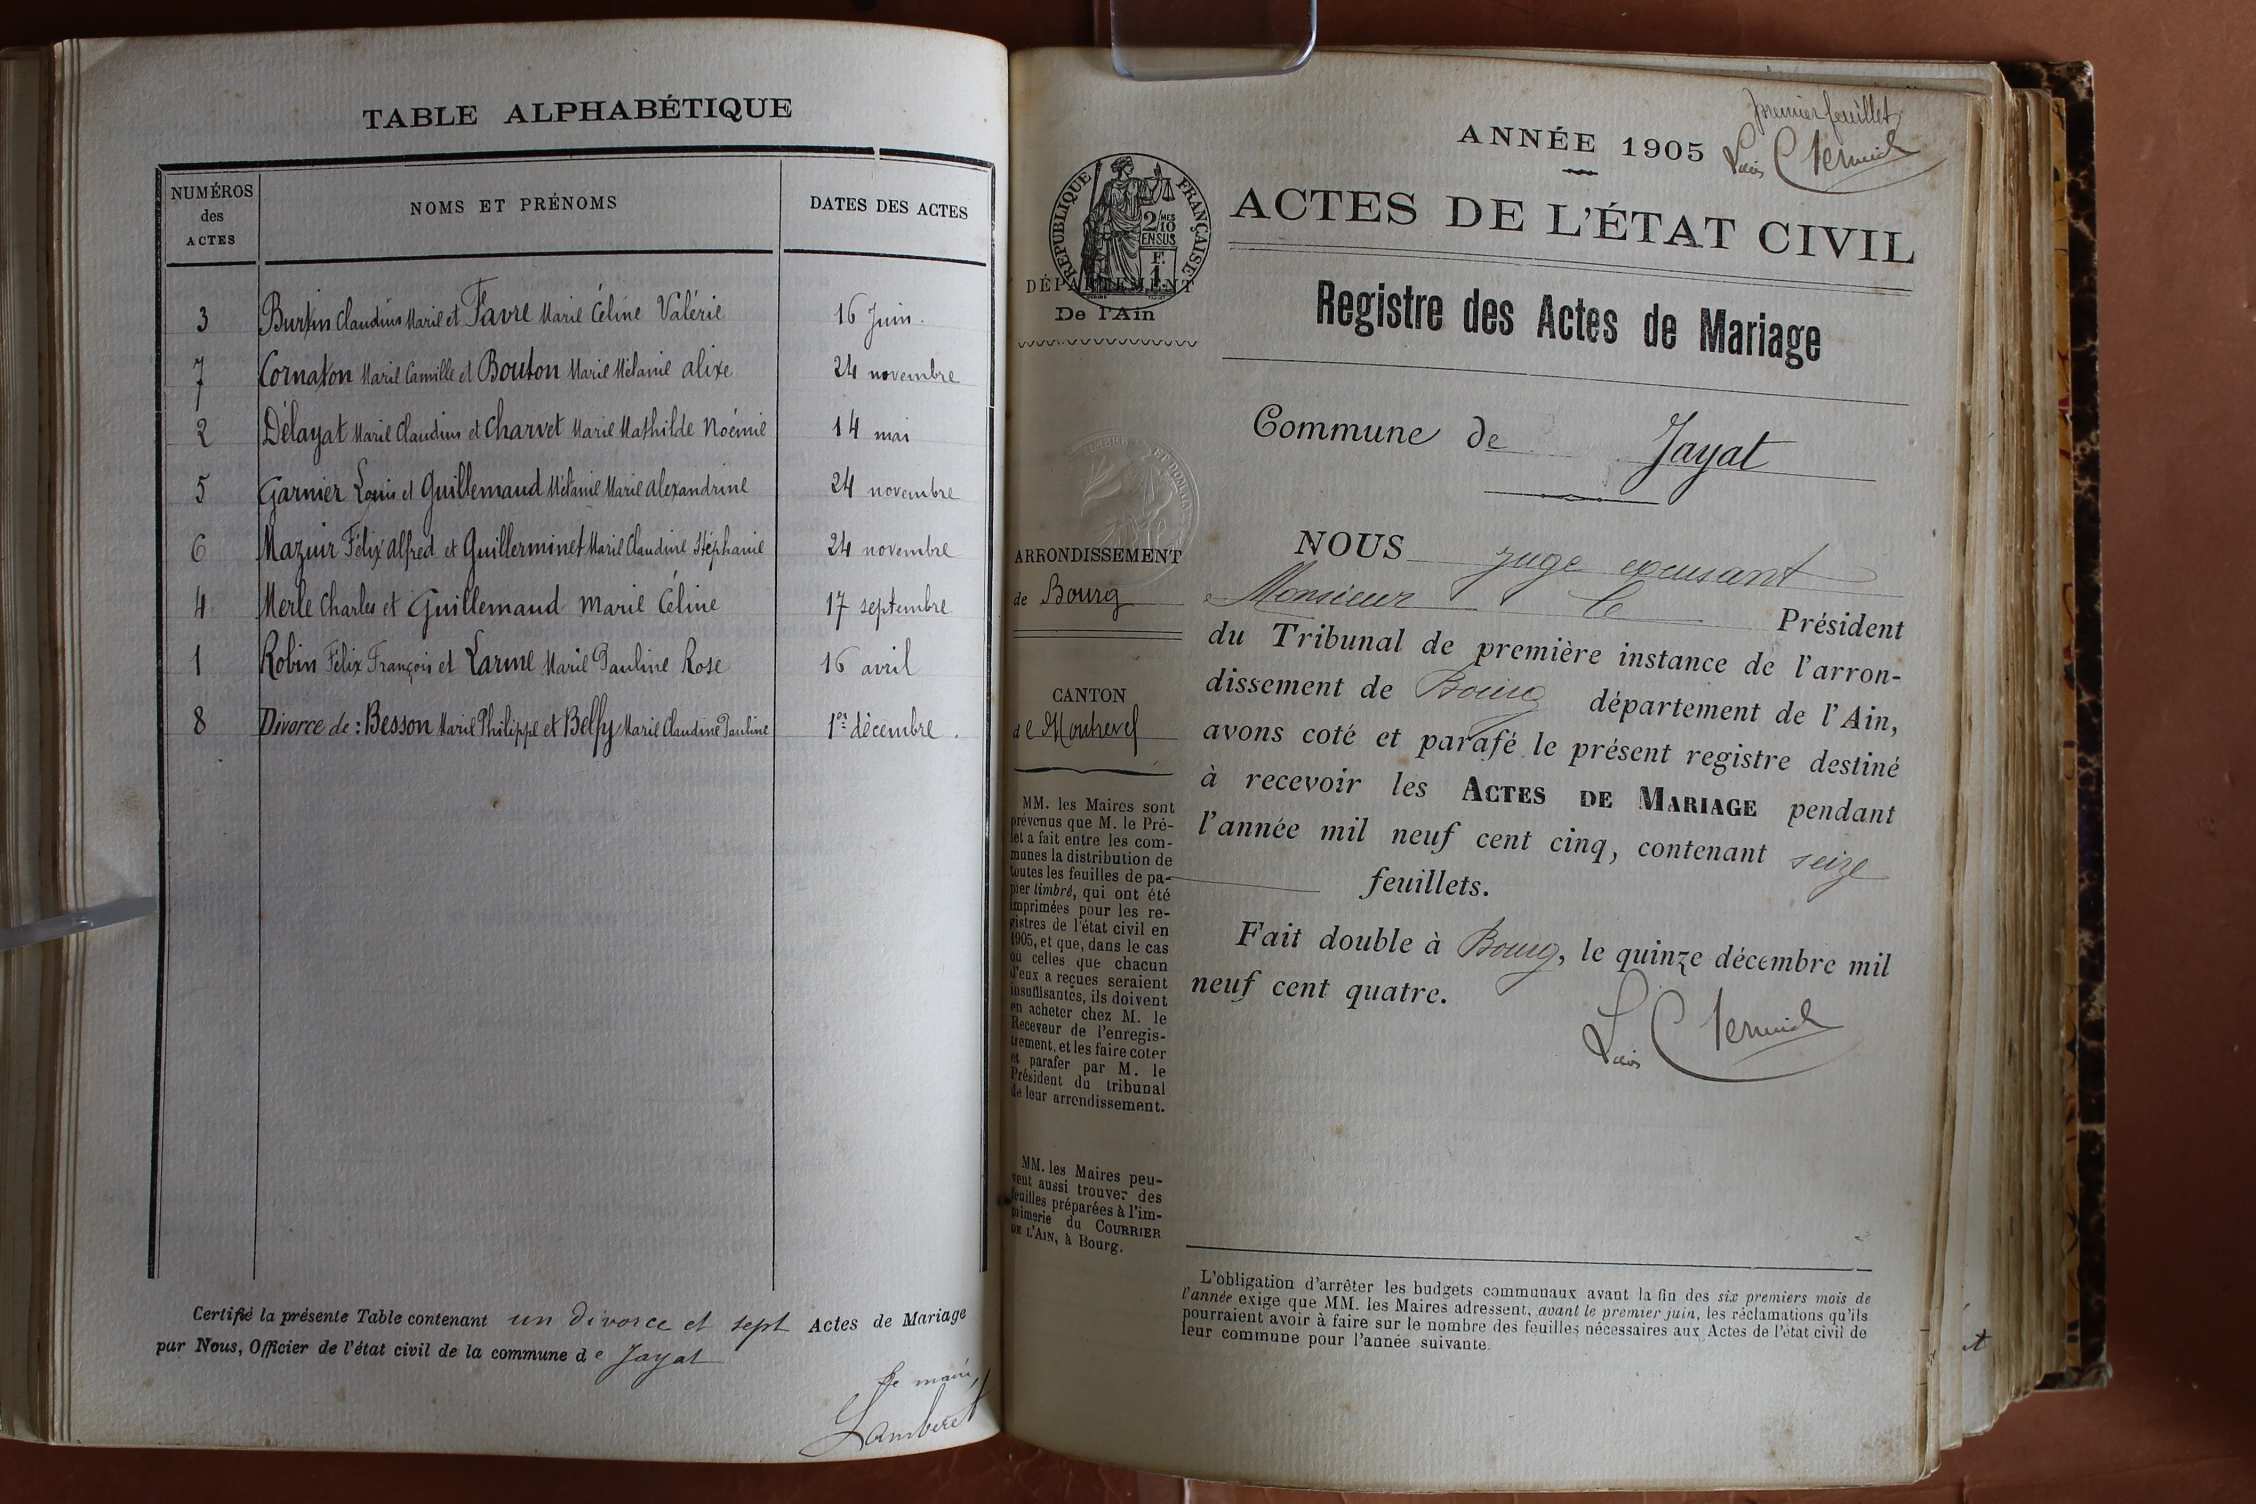 TABLE ALPHABÉTIQUE
NUMÉROS des ACTES
NOMS ET PRÉNOMS
DATES DES ACTES
3 Burtin Claudius Marie et Favre Marie Céline Valérie 16 Juin.
7 Cornaton Marie Camille et Bouton Marie Mélanie alixe 24 novembre
2 Délayat Marie Claudius et Charvet Marie Mathilde Noémie 14 mai
5 Garnier Louis et Guillemaud Mélanie Marie alexandrine 24 novembre
6 Mazuir Félix alfred et Guillerminet Marie Claudine Stéphanie 24 novembre
4 Merle Charles et Guillemaud Marie Céline 17 septembre
1 Robin Félix François et Larme Marie Pauline Rose 16 avril
8 Divorce de : Besson Marie Philippe et Belfy Marie Claudine Pauline 1er décembre.
Certifié la présente Table contenant un divorce et sept Actes de Mariage
par Nous, Officier de l'état civil de la commune de Jayat
Le maire,
Lamberet
premier feuillet
ANNÉE 1905
ACTES DE L'ÉTAT CIVIL
RÉPUBLIQUE FRANÇAISE
2/10 MES
EN SUS
F.
1
DÉPARTEMENT
De l'Ain
Registre des Actes de Mariage
Commune de Jayat
ARRONDISSEMENT
de Bourg
CANTON
de Montrevel
MM. les Maires sont
prévenus que M. le Pré-
fet a fait entre les com-
munes la distribution de
toutes les feuilles de pa-
pier timbré, qui ont été
imprimées pour les re-
gistres de l'état civil en
1905, et que, dans le cas
où celles que chacun
d'eux a reçues seraient
insuffisantes, ils doivent
en acheter chez M. le
Receveur de l'enregis-
trement, et les faire coter
et parafer par M. le
Président du tribunal
de leur arrondissement.
MM. les Maires peu-
vent aussi trouver des
feuilles préparées à l'im-
primerie du COURRIER
DE L'AIN, à Bourg.
NOUS juge excusant
Monsieur le Président
du Tribunal de première instance de l'arron-
dissement de Bourg département de l'Ain,
avons coté et parafé le présent registre destiné
à recevoir les ACTES DE MARIAGE pendant
l'année mil neuf cent cinq, contenant seize
feuillets.
Fait double à Bourg, le quinze décembre mil
neuf cent quatre.
L'obligation d'arrêter les budgets communaux avant la fin des six premiers mois de
l'année exige que MM. les Maires adressent, avant le premier juin, les réclamations qu'ils
pourraient avoir à faire sur le nombre des feuilles nécessaires aux Actes de l'état civil de
leur commune pour l'année suivante.